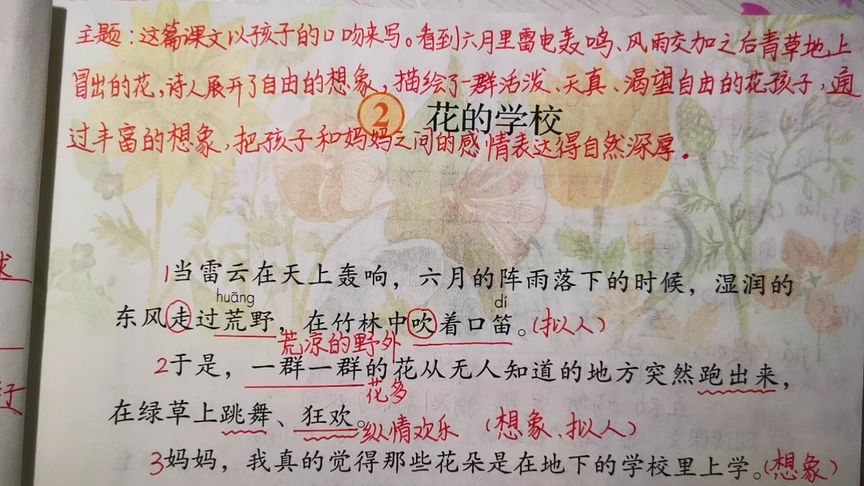 主题：这篇课文以孩子的口吻来写。看到六月里雷电轰鸣、风雨交加之后青草地上
冒出的花，诗人展开了自由的想象，描绘了一群活泼、天真、渴望自由的花孩子，通
过丰富的想象，把孩子和妈妈之间的感情表达得自然深厚。
2 花的学校
1当雷云在天上轰响，六月的阵雨落下的时候，湿润的
huāng dí
东风走过荒野，在竹林中吹着口笛。(拟人)
荒凉的野外
2于是，一群一群的花从无人知道的地方突然跑出来，
花多
在绿草上跳舞、狂欢。纵情欢乐（想象、拟人）
3妈妈，我真的觉得那些花朵是在地下的学校里上学。(想象)